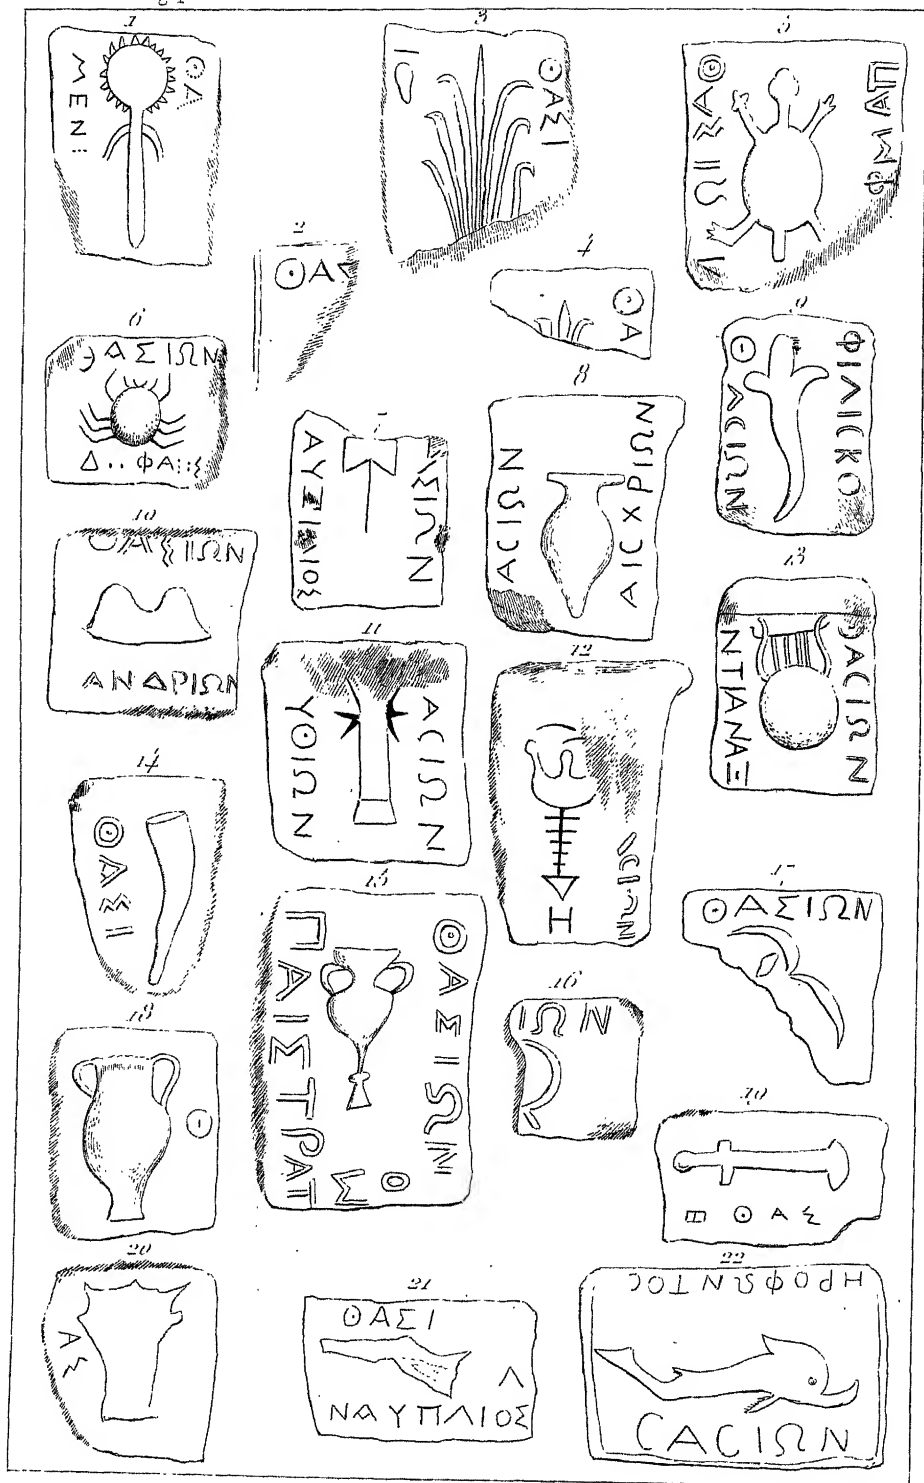 1
ΘΑ
ΜΕΝ
3
ΘΑΣΙ
Ι
5
ΘΑΣΙΩ
Ν
ΠΑΜΦ
2
ΘΑΣ
4
ΘΑ
6
ΘΑΣΙΩΝ
Δ..ΦΑ
ΑΥΞΙ
ΙΟΣ
ΣΙΩΝ
8
ΑϹΙΩΝ
ΑΙϹΧΡΙΩΝ
9
ΘΑϹΙΩΝ
ΦΙΛΙϹΚΟ
10
ΘΑΣΙΩΝ
ΑΝΔΡΙΩΝ
11
ΥΘΙΩΝ
ΑϹΙΩΝ
12
ΙϹΙΩΝ
Η
13
ΝΤΙΑΝΑΞ
ΘΑϹΙΩΝ
14
ΘΑΣΙ
15
ΠΑΙΣΤΡΑΤ
ΘΑΣΙΩΝ
Ο
Σ
16
ΙΩΝ
17
ΘΑΣΙΩΝ
18
Θ
19
Θ Α Σ
20
ΑΣ
21
ΘΑΣΙ
Λ
ΝΑΥΠΛΙΟΣ
22
ΗΡΟΦΩΝΤΟϹ
ϹΑϹΙΩΝ